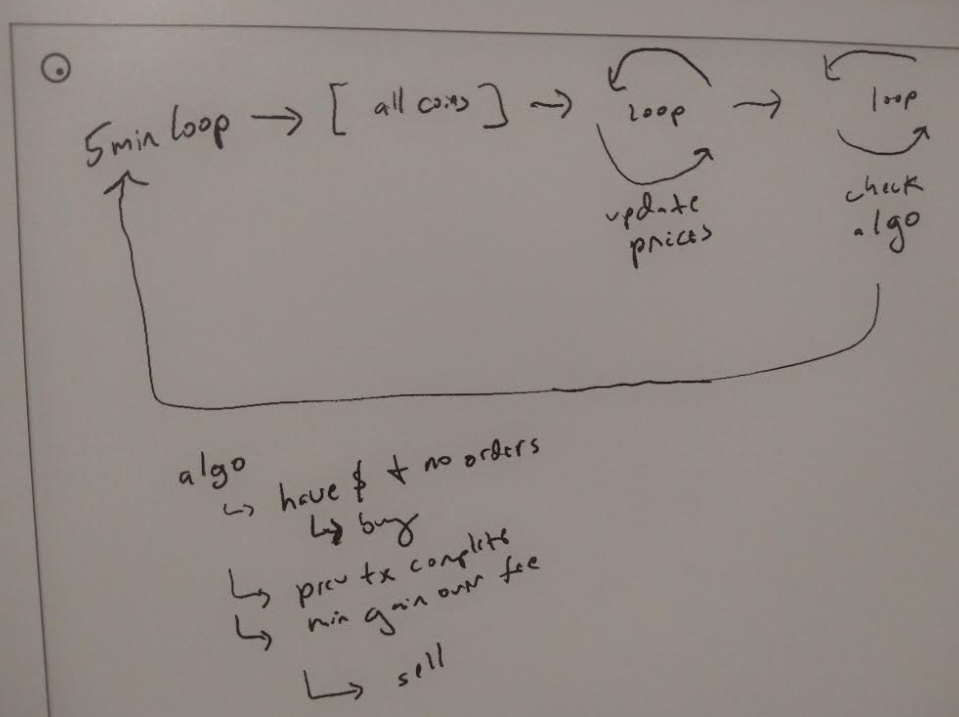 5min loop → [ all coins ] → loop → loop
update
prices
check
algo
algo
↳ have $ + no orders
↳ buy
↳ prev tx complete
↳ min gain over fee
↳ sell